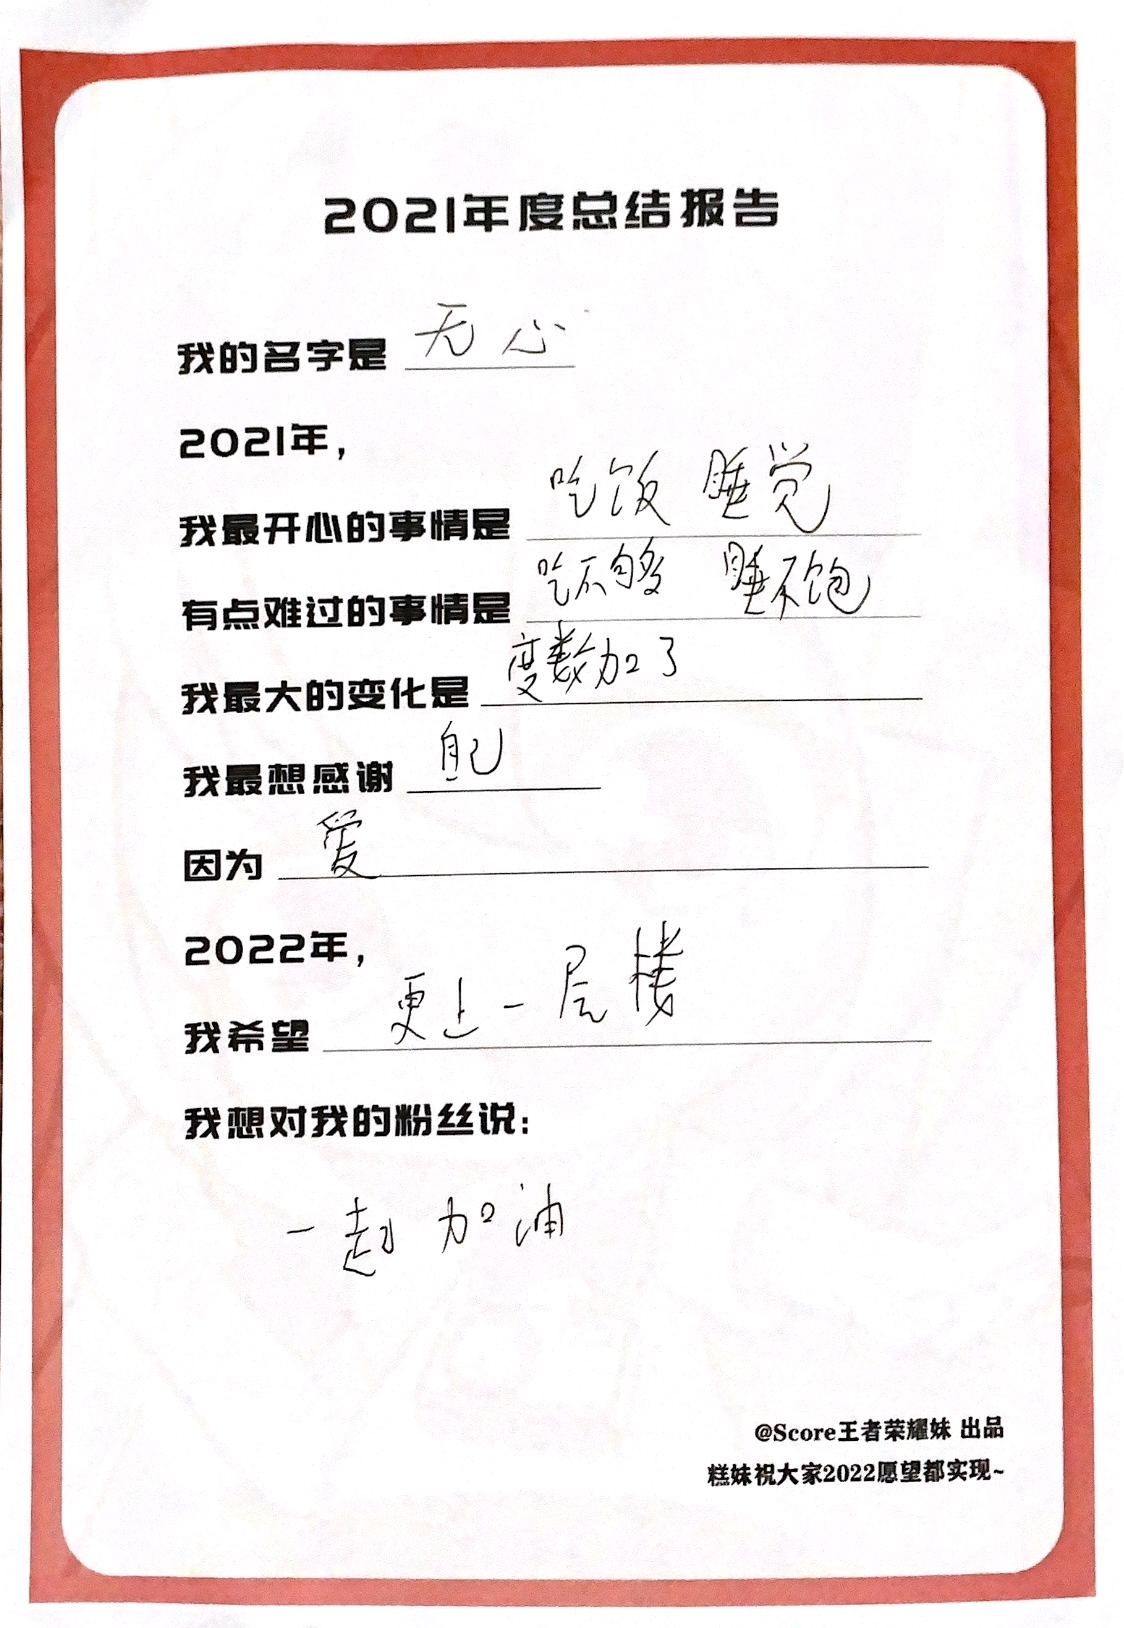 2021年度总结报告
我的名字是 无心
2021年，
我最开心的事情是 吃饭 睡觉
有点难过的事情是 吃不够 睡不饱
我最大的变化是 度数加了
我最想感谢 自己
因为 爱
2022年，
我希望 更上一层楼
我想对我的粉丝说：
一起 加油
@Score王者荣耀妹 出品
糕妹祝大家2022愿望都实现~